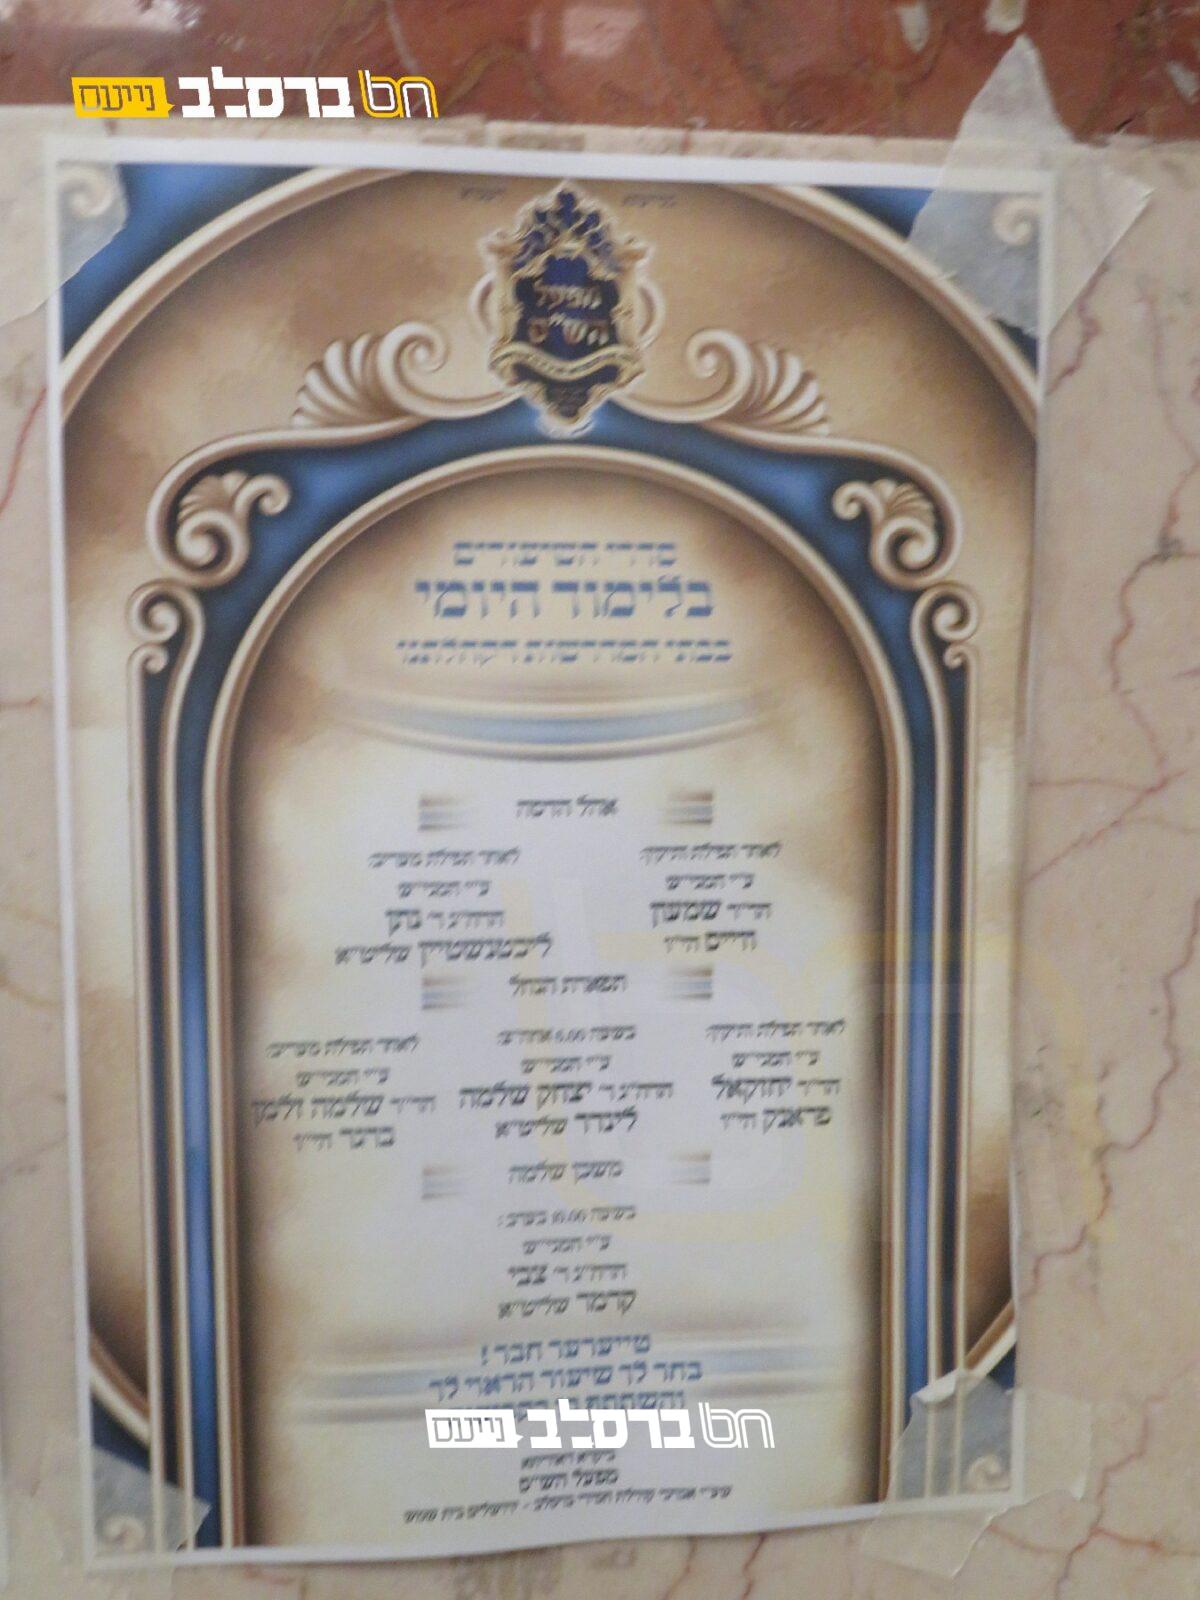 חסידי ברסלב נייעס
מפעל
הש"ס
סדרי השיעורים
בלימוד היומי
בבתי המדרשות דקהלתנו
לאחר תפילת ותיקין:
ע"י המגי"ש
הר"ר שמעון
חיים הי"ו
לאחר תפילת מעריב:
ע"י המגי"ש
הרה"ג ר' נתן
ליכטנשטיין שליט"א
תפארת הנחל
לאחר תפילת ותיקין:
ע"י המגי"ש
הר"ר יחזקאל
פראנק הי"ו
בשעה 6.00 אחה"צ:
ע"י המגי"ש
הרה"ג ר' יצחק שלמה
לינדר שליט"א
לאחר תפילת מעריב:
ע"י המגי"ש
הר"ר שלמה זלמן
ברגר הי"ו
משכן שלמה
בשעה 10.00 בערב:
ע"י המגי"ש
הרה"ג ר' צבי
קרמר שליט"א
טייערער חבר!
בחר לך שיעור הראוי לך
והשתתף
ברסלב נייעס
מפעל הש"ס
ירושלים בית שמש